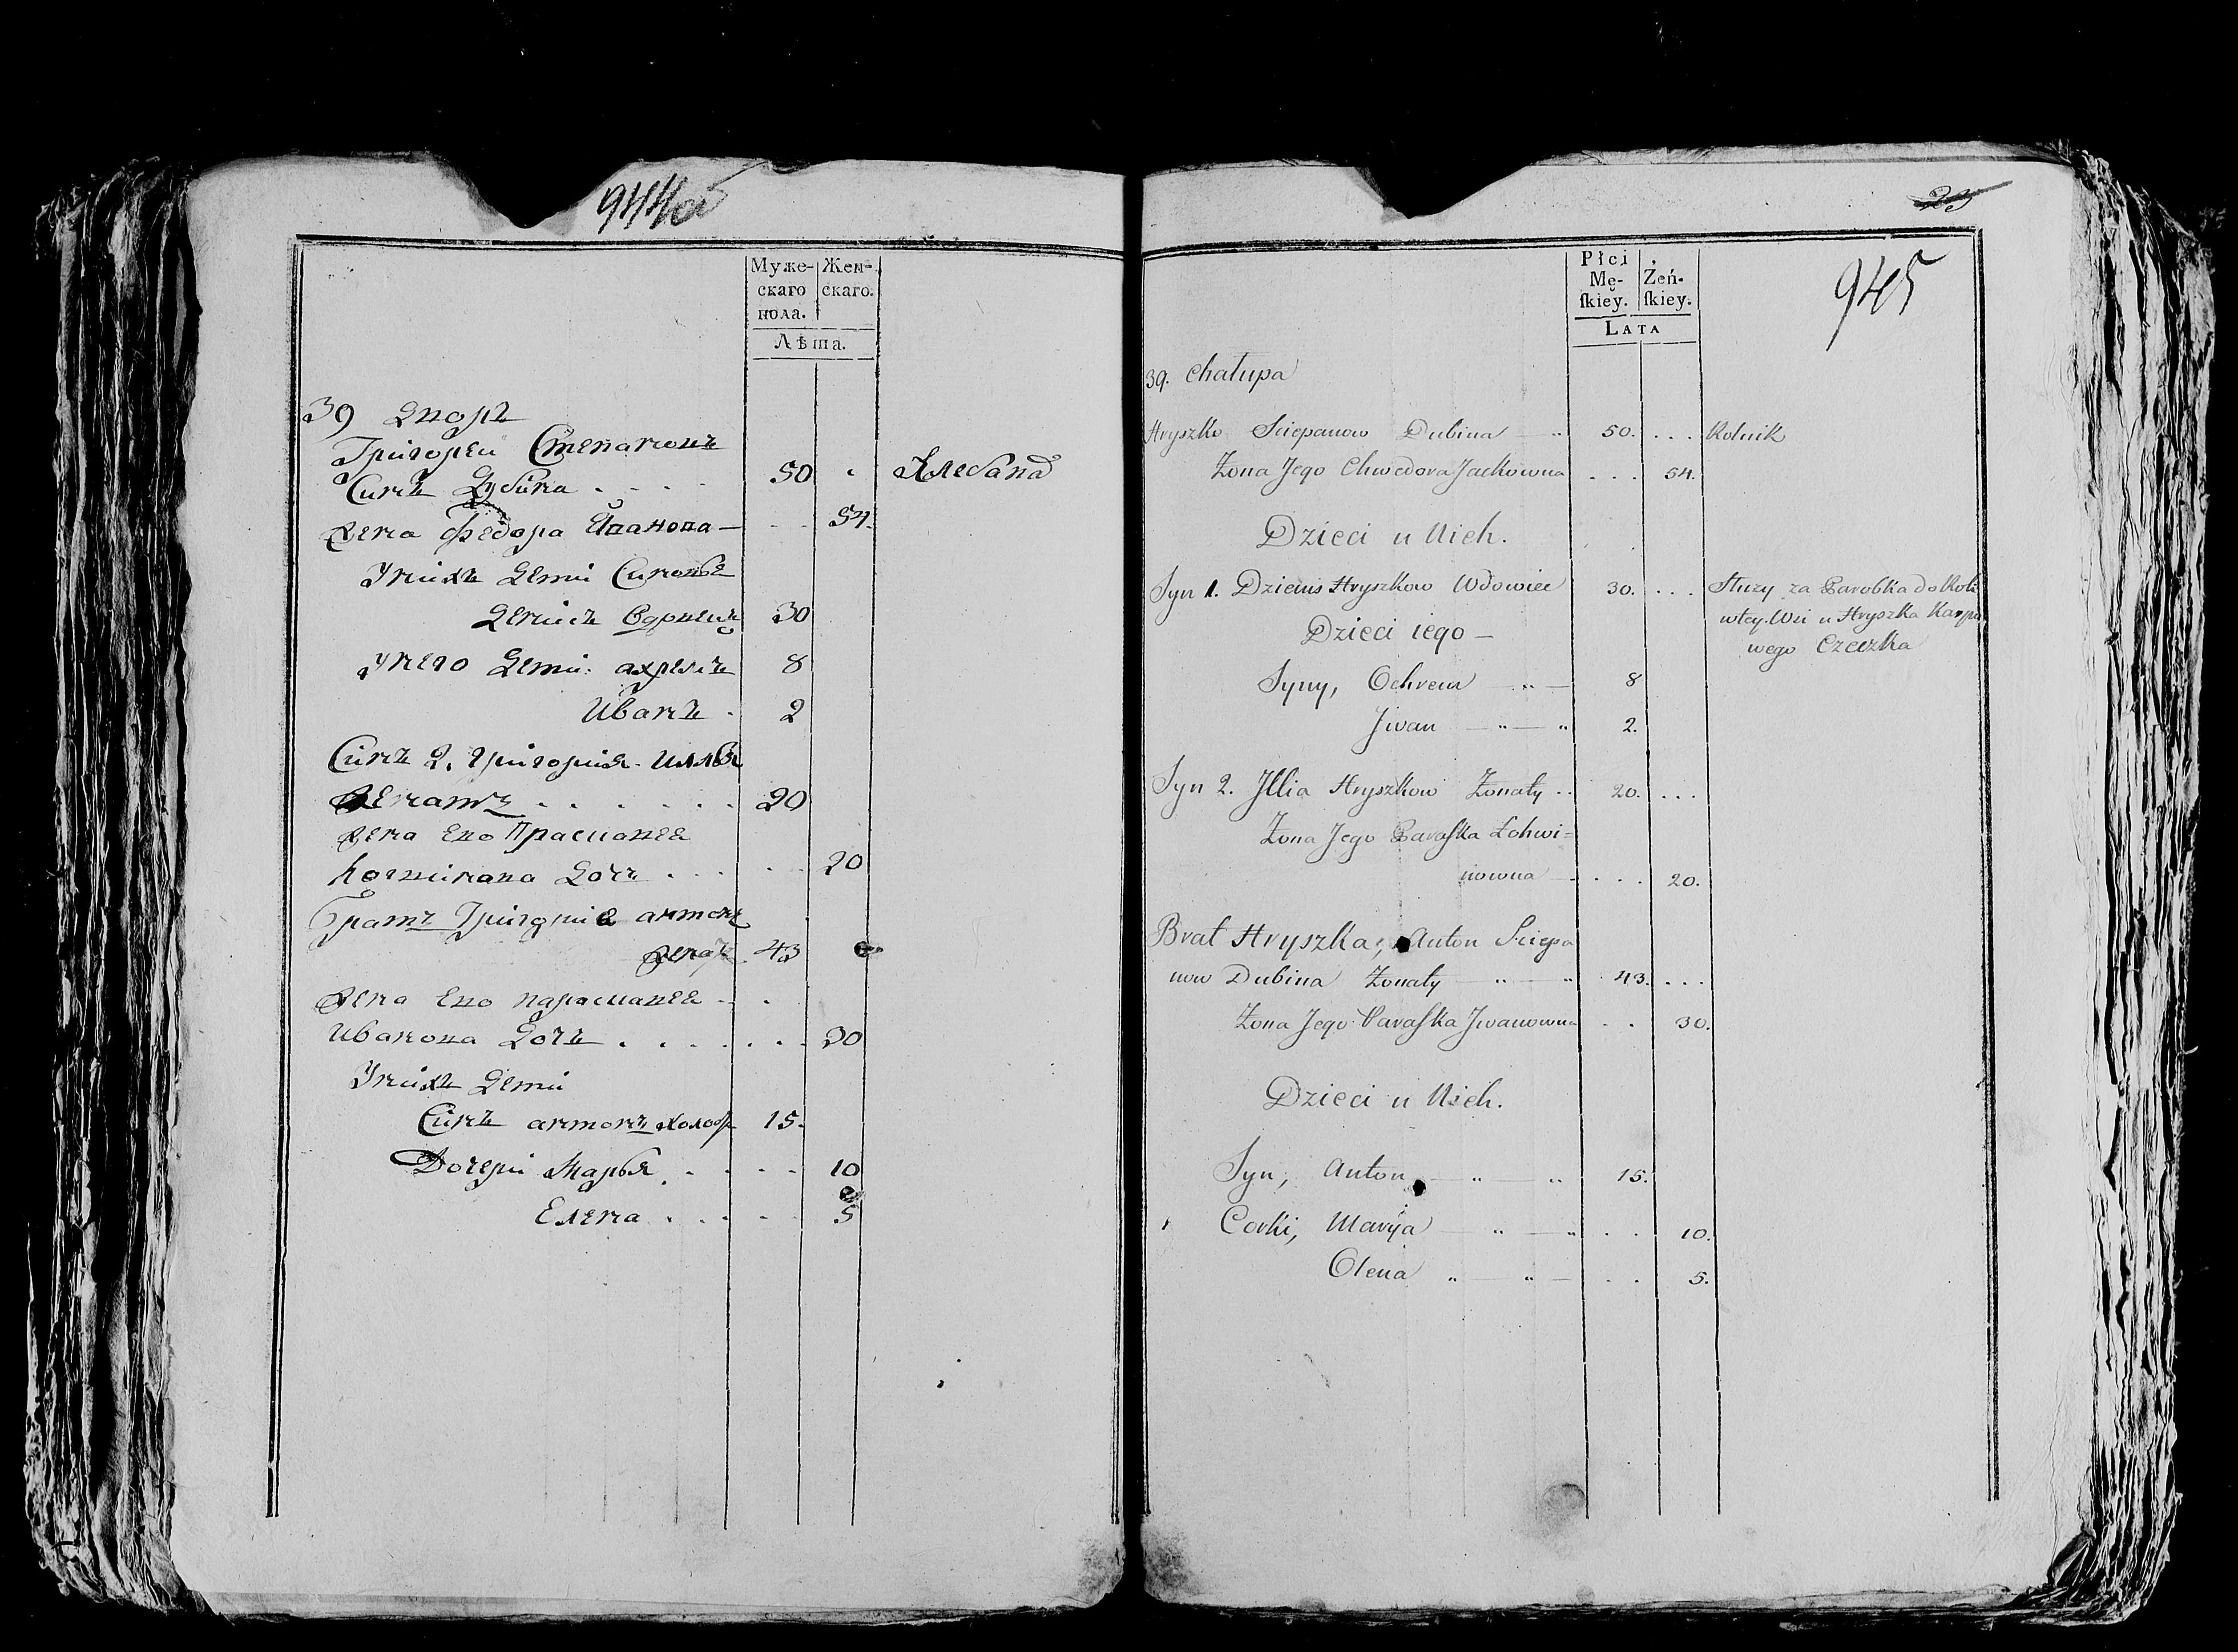 944об
Муже-
скаго
пола.
Жен-
скаго.
Лѣта.
39 Дворъ
Григореи Степановъ
Синъ Дубина . . . . 50 . Хлебапа
Жена Федора Іванова — . . 54.
Унихъ Дети Синовья
Денисъ Вдовецъ 30
Унего Дети: ахремъ 8
Иванъ . 2
Синъ 2. григория. илья
Женатъ . . . . . . 20
Жена Ево Прасковея
Логвинова Дочъ . . . . . 20
Братъ Григория антонъ
Женатъ. 43
Жена Ево парасковея . .
Иванова Дочъ . . . . . . . 30
Унихъ Дети
Синъ антонъ холост 15.
Дочери Марья . . . . . 10
Елена . . . . . 5
23
945
Płci
Mę-
ſkiey.
Żeń-
ſkiey.
LATA
39. Chałupa
Hryszko Sciepanow Dubina — „ 50. . . . Rolnik
Żona Jego Chwedora Jackowna . . . 54.
Dzieci u Nich.
Syn 1. Dzienis Hryszkow Wdowiec 30. . . . Służy za Parobka do Roli
wtey Wsi u Hryszka Karpo
wego Czeczka
Dzieci iego —
Syny, Ochrem — „ — 8
Jwan — „ — „ 2.
Syn 2. Jllia Hryszkow Żonaty . . 20. . . .
Żona Jego Paraſka Łohwi=
nowna — . . . 20.
Brat Hryszka, Anton Sciepa
now Dubina Żonaty — „ — „ 43. . . .
Żona Jego Paraſka Jwanowna . . 30.
Dzieci u Nich.
Syn, Anton — „ — „ 15.
Corki, Marÿa — „ — „ . . 10.
Olena „ — „ — . . 5.